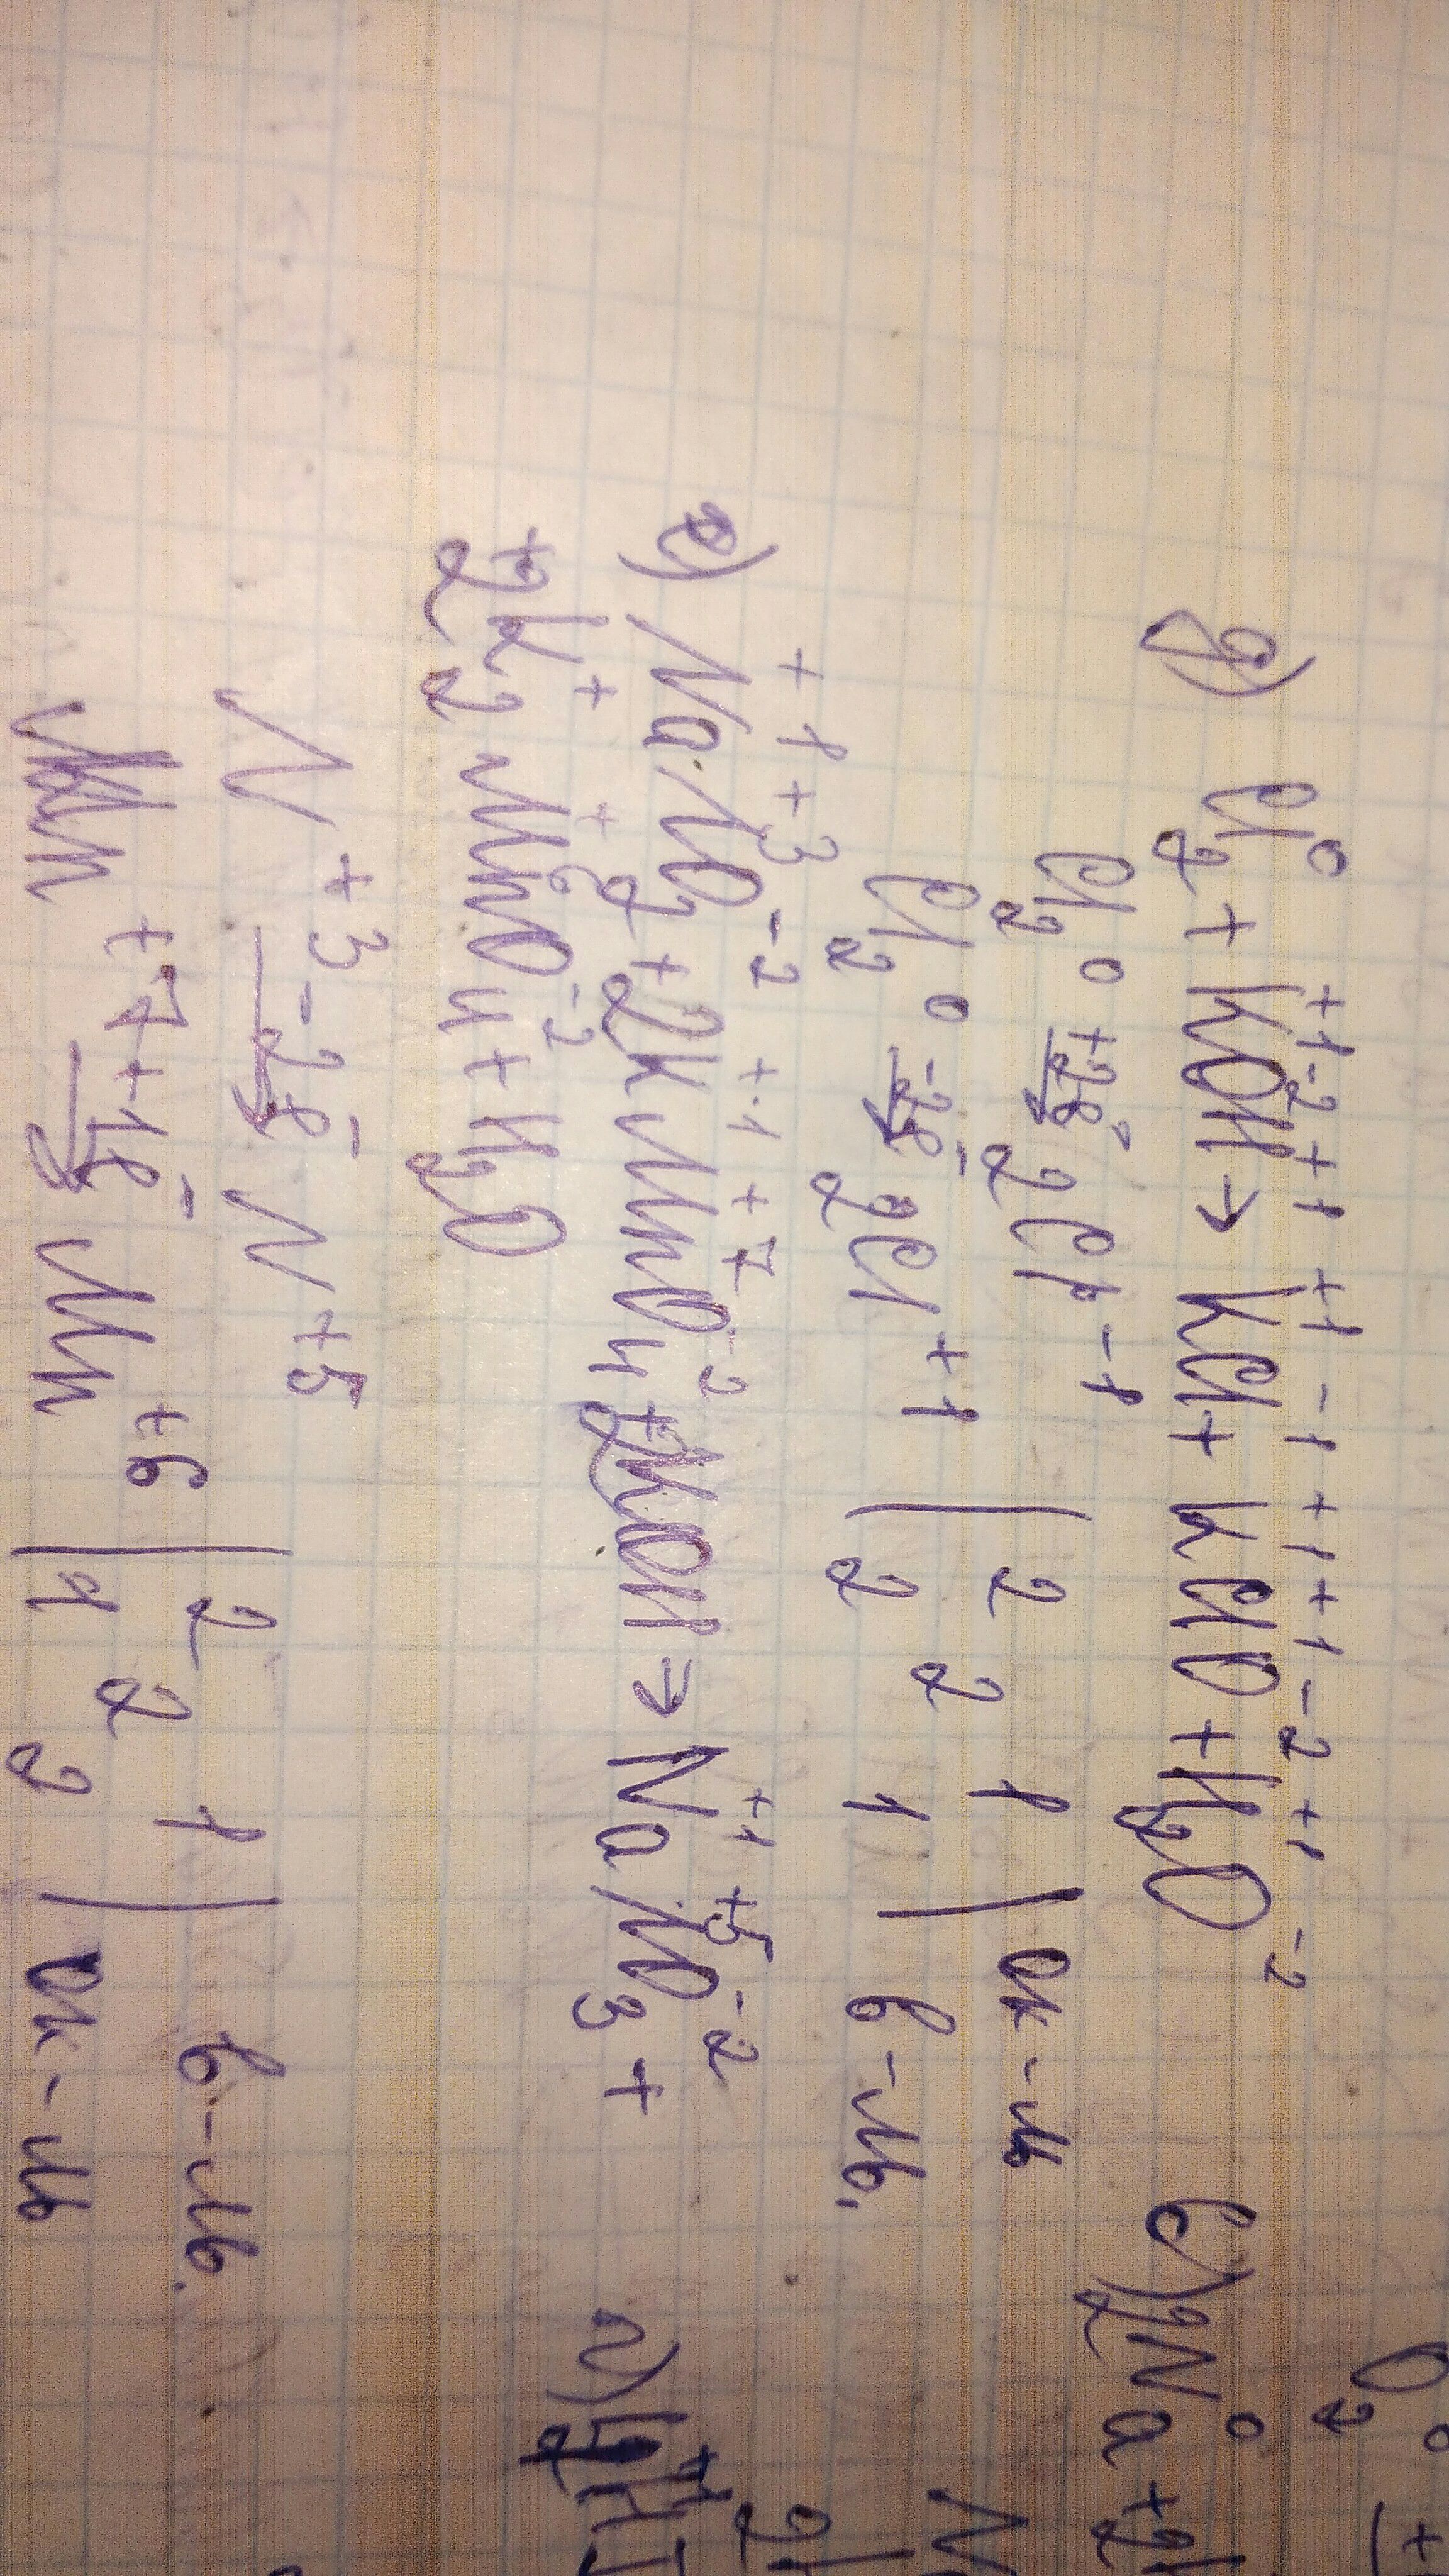 д) Cl₂⁰ + K⁺¹O⁻²H⁺¹ → K⁺¹Cl⁻¹ + K⁺¹Cl⁺¹O⁻² + H₂⁺¹O⁻²
Cl₂⁰ +2ē 2Cl⁻¹ | 2 2 1 | ок-ль
Cl₂⁰ -2ē 2Cl⁺¹ | 2 1 | в-ль.
е) Na⁺¹N⁺³O₂⁻² + 2K⁺¹Mn⁺⁷O₄⁻² + 2KOH → Na⁺¹N⁺⁵O₃⁻² +
+ 2K₂⁺Mn⁺⁶O₄⁻² + H₂O
N⁺³ -2ē N⁺⁵ | 2 2 1 | в-ль.
Mn⁺⁷ +1ē Mn⁺⁶ | 1 2 | ок-ль